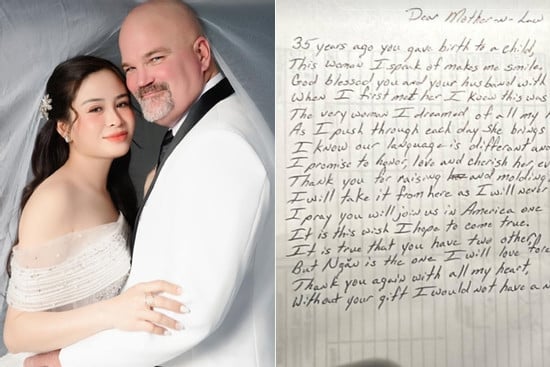 Dear Mother-n-Law
35 years ago you gave birth to a child
This woman I speak of makes me smile,
God blessed you and your husband with
When I first met her I knew this was
The very woman I dreamed of all my
As I push through each day she brings
I know our language is differant and
I promise to honor, love and cherish her
Thank you for raising and molding
I will take it from here as I will never
I pray you will join us in America one
It is this wish I hope to come true.
It is true that you have two other
But Ngân is the one I will love
Thank you again with all my heart,
Without your gift I would not have a